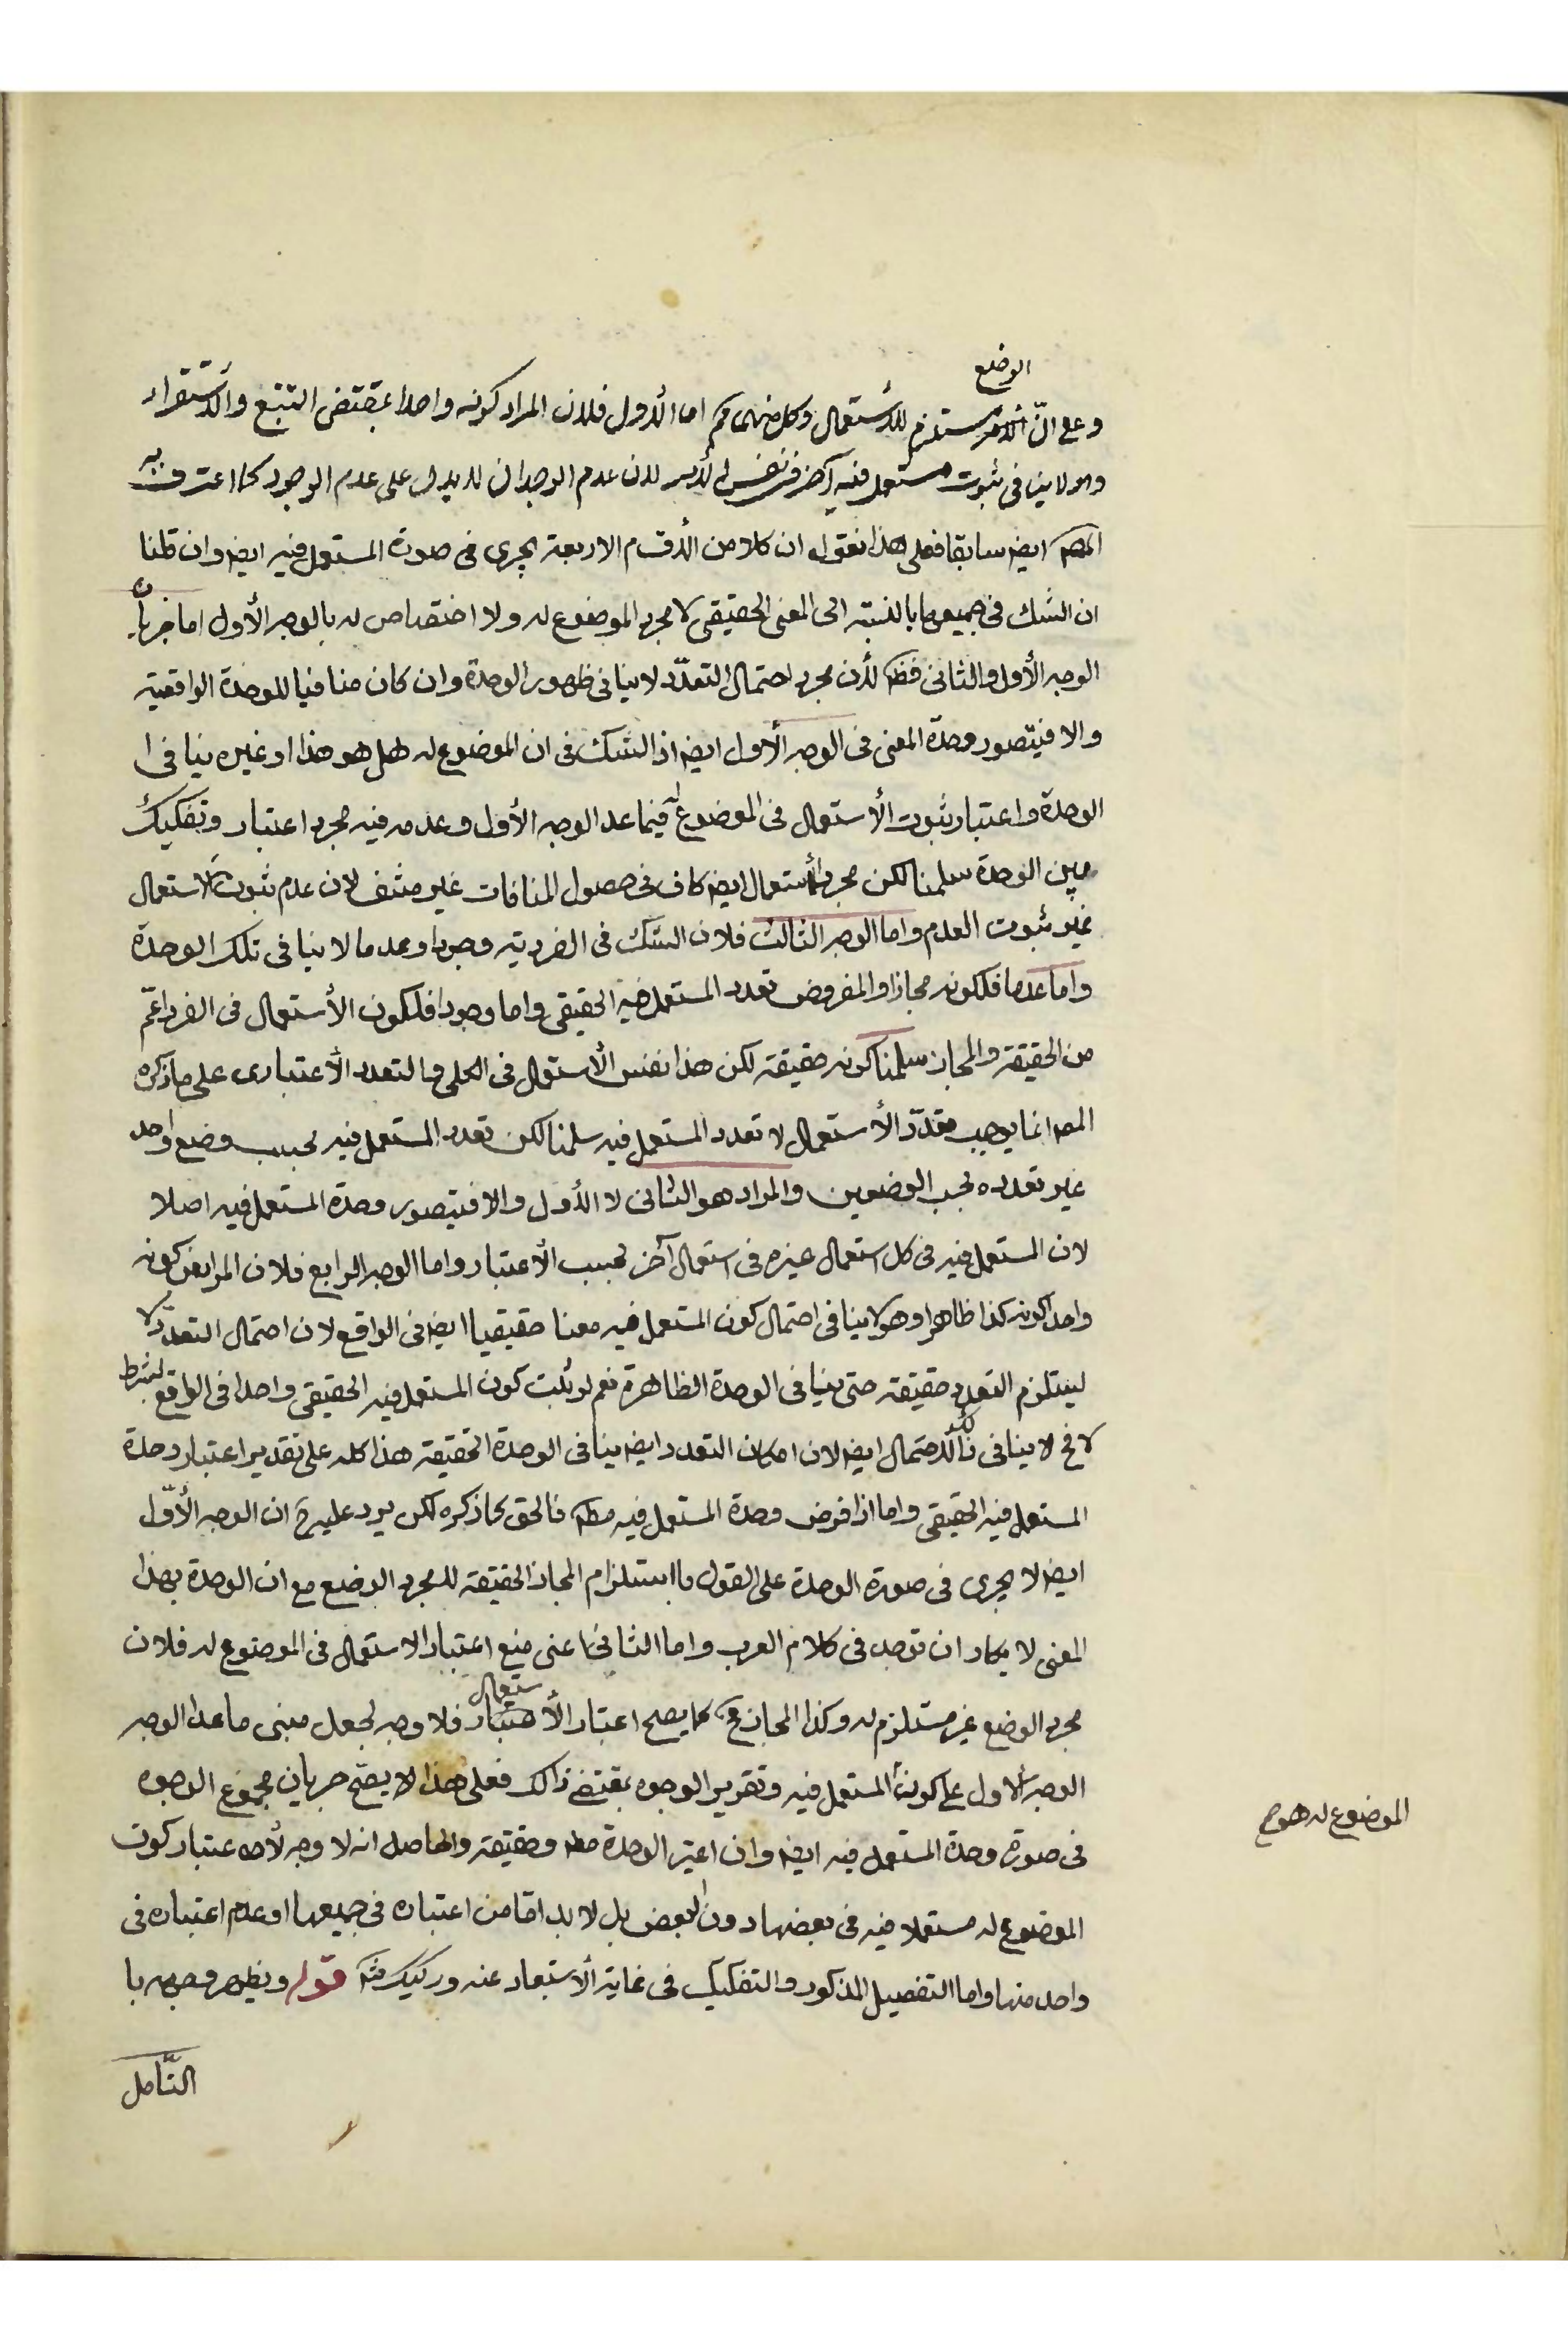 الوضع
وعلى انّ الامر مستلزم للأستعمال وكل منهما مم اما الأول فلان المراد كونه واحدا بمقتضى التتبع والأستقراء
وهو لا ينافى ثبوت مستعمل فيه آخر فى نفس الأمر لان عدم الوجدان لا يدل على عدم الوجود كما اعترف به
المصـ ايضـ سابقا فعلى هذا نقول ان كلا من الأقسام الاربعة يجرى فى صورة المستعمل فيه ايضـ وان قلنا
ان الشك فى جميعها بالنسبة الى المعنى الحقيقى لا مجرد الموضوع له ولا اختصاص له بالوجه الأول اما جريان
الوجه الأول والثانى فظـ لأن مجرد احتمال التعدّد لا ينافى ظهور الوحدة وان كان منافيا للوحدة الواقعية
والا فيتصور وحدة المعنى فى الوجه الأول ايضـ اذ الشك فى ان الموضوع له هل هو هذا او غيره ينافى
الوحدة واعتبار ثبوت الأستعمال فى الموضوع له فيما عدا الوجه الأول وعدمه فيه مجرد اعتبار وتفكيك
مبين الوحدة سلمنا لكن مجرد الأستعمال ايضـ كاف فى حصول المنافات غير منتف لان عدم ثبوت الاستعمال
غير ثبوت العدم واما الوجه الثالث فلان الشك فى الفردية وجودا وعدما لا ينافى تلك الوحدة
واما عدما فلكونه مجازا والمفروض تعدد المستعمل فيه الحقيقى واما وجودا فلكون الأستعمال فى الفرد اعّم
من الحقيقة والمجاز سلمنا كونه حقيقة لكن هذا نفس الأستعمال فى الكلى والتعدد الأعتبارى على ما ذكره
المصـ انما يوجب تعدّد الأستعمال لا تعدد المستعمل فيه سلمنا لكن تعدد المستعمل فيه بحسب وضع واحد
غير تعدده بحسب الوضعين والمراد هو الثانى لا الأول والا فيتصور وحدة المستعمل فيه اصلا
لان المستعمل فيه فى كل استعمال غيره فى استعمال آخر بحسب الأعتبار واما الوجه الرابع فلان المراد من كونه
واحدا كونه كذا ظاهرا وهو لا ينافى احتمال كون المستعمل فيه معنا حقيقيا ايضـ فى الواقع لان احتمال التعدّد لا
يستلزم التعدد حقيقة حتى ينافى الوحدة الظاهرة نعم لو ثبت كون المستعمل فيه الحقيقى واحدا فى الواقع بشرط
لا فح لا ينافى ذلك الأحتمال ايضـ لان امكان التعدد ايضـ ينافى الوحدة الحقيقة هذا كله على تقدير اعتبار وحدة
المستعمل فيه الحقيقى واما اذا فرض وحدة المستعمل فيه مطـ فالحق كما ذكره لكن يرد عليه ح ان الوجه الأوّل
ايضـ لا يجرى فى صورة الوحدة على القول باستلزام المجاز الحقيقة لا مجرد الوضع مع ان الوحدة بهذا
المعنى لا يكاد ان توجد فى كلام العرب واما الثانى اعنى منع اعتبار الاستعمال فى الموضوع له فلان
مجرد الوضع غير مستلزم له وكذا المجاز كما يصح اعتبار الأستعمال فلا وجه لجعل مبنى ما عدا الوجه
الوجه الأول على كونه المستعمل فيه وتقرير الوجوه بمقتضى ذالك فعلى هذا لا يصّح جريان مجموع الوجوه
الموضوع له هو ح
فى صورة وحدة المستعمل فيه ايضـ وان اعتبر الوحدة مطـ وحقيقة والحاصل انه لا وجه لأعتبار كون
الموضوع له مستعملا فيه فى بعضها دون البعض بل لا بد اما من اعتباره فى جميعها او عدم اعتباره فى
واحد منها واما التفصيل المذكور والتفكيك فى غاية الأستبعاد عنه وركيك منه قوله ويظهر وجهه با
التّأمل